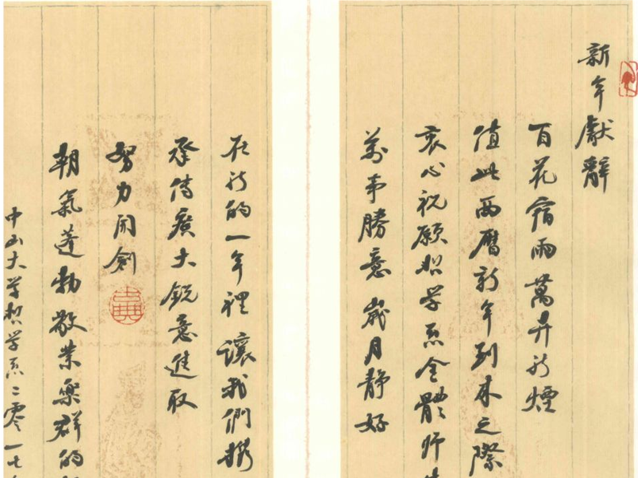 新年獻辭
百花宿雨萬井新煙
值此西曆新年到來之際
衷心祝願哲学系全體师生
萬事勝意歲月静好
在新的一年裡讓我們攜
承傳廣大銳意進取
努力開創
朝氣蓬勃敬業樂群的
中山大学哲学系二零一七